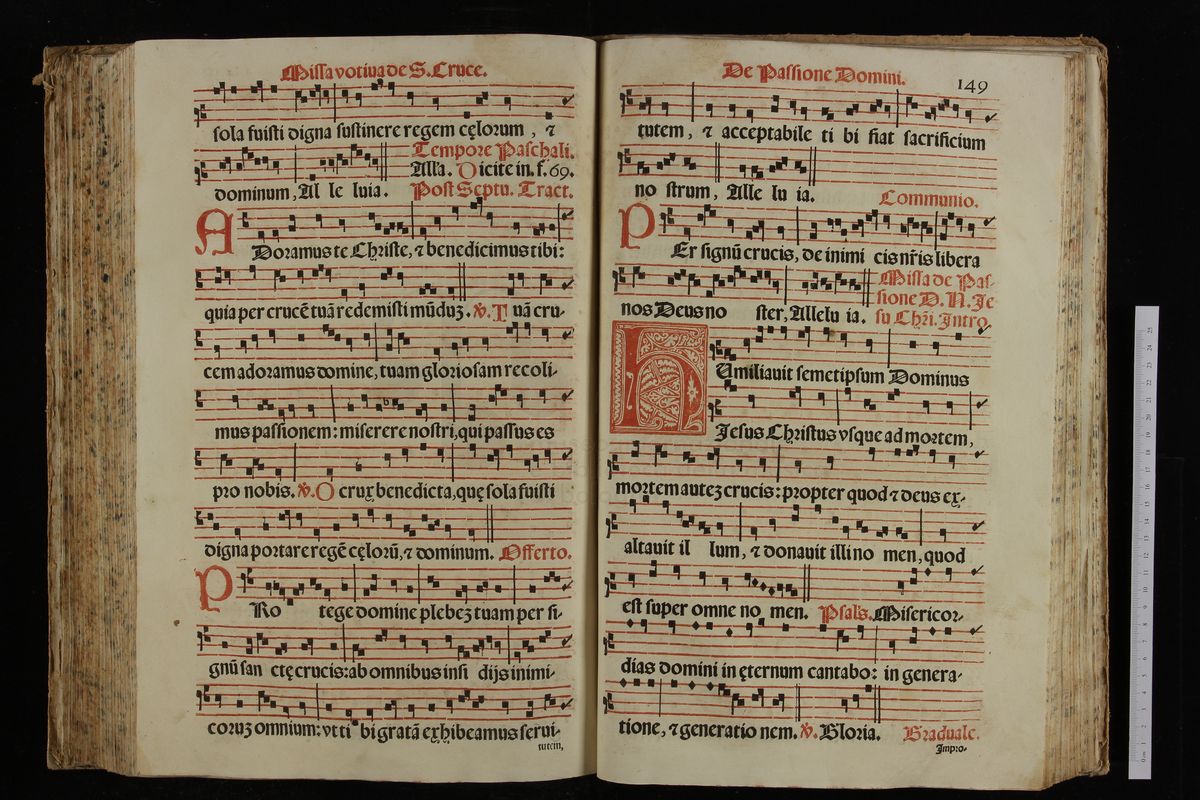 Missa votiua de S. Cruce.
sola fuisti digna sustinere regem cęlorum , ⁊
Tempore Paschali.
Alla. Dicite in. f. 69.
dominum, Al le luia. Post Septu. Tract.
ADoramus te Christe, ⁊ benedicimus tibi:
quia per crucē tuā redemisti mūduʒ. ℣. Tuā cru-
cem adoramus domine, tuam gloriosam recoli-
mus passionem: miserere nostri, qui passus es
pro nobis. ℣. O crux benedicta, quę sola fuisti
digna portare regē cęlorū, ⁊ dominum. Offerto.
PRo tege domine plebeʒ tuam per si-
gnū san ctę crucis: ab omnibus insi dijs inimi-
coruʒ omnium: vt ti bi gratā exhibeamus serui-
tutem,
De Passione Domini. 149
tutem, ⁊ acceptabile ti bi fiat sacrificium
no strum, Alle lu ia. Communio.
PEr signū crucis, de inimi cis nr̄is libera
Missa de Pas-
sione D. N. Je
nos Deus no ster, Allelu ia. su Chr̄i. Intro.
HUmiliauit semetipsum Dominus
Jesus Christus vsque ad mortem,
mortem auteʒ crucis: propter quod ⁊ deus ex-
altauit il lum, ⁊ donauit illi no men, quod
est super omne no men. Psals. Misericor-
dias domini in ęternum cantabo: in genera-
tione, ⁊ generatio nem. ℣. Gloria. Graduale.
Impro-